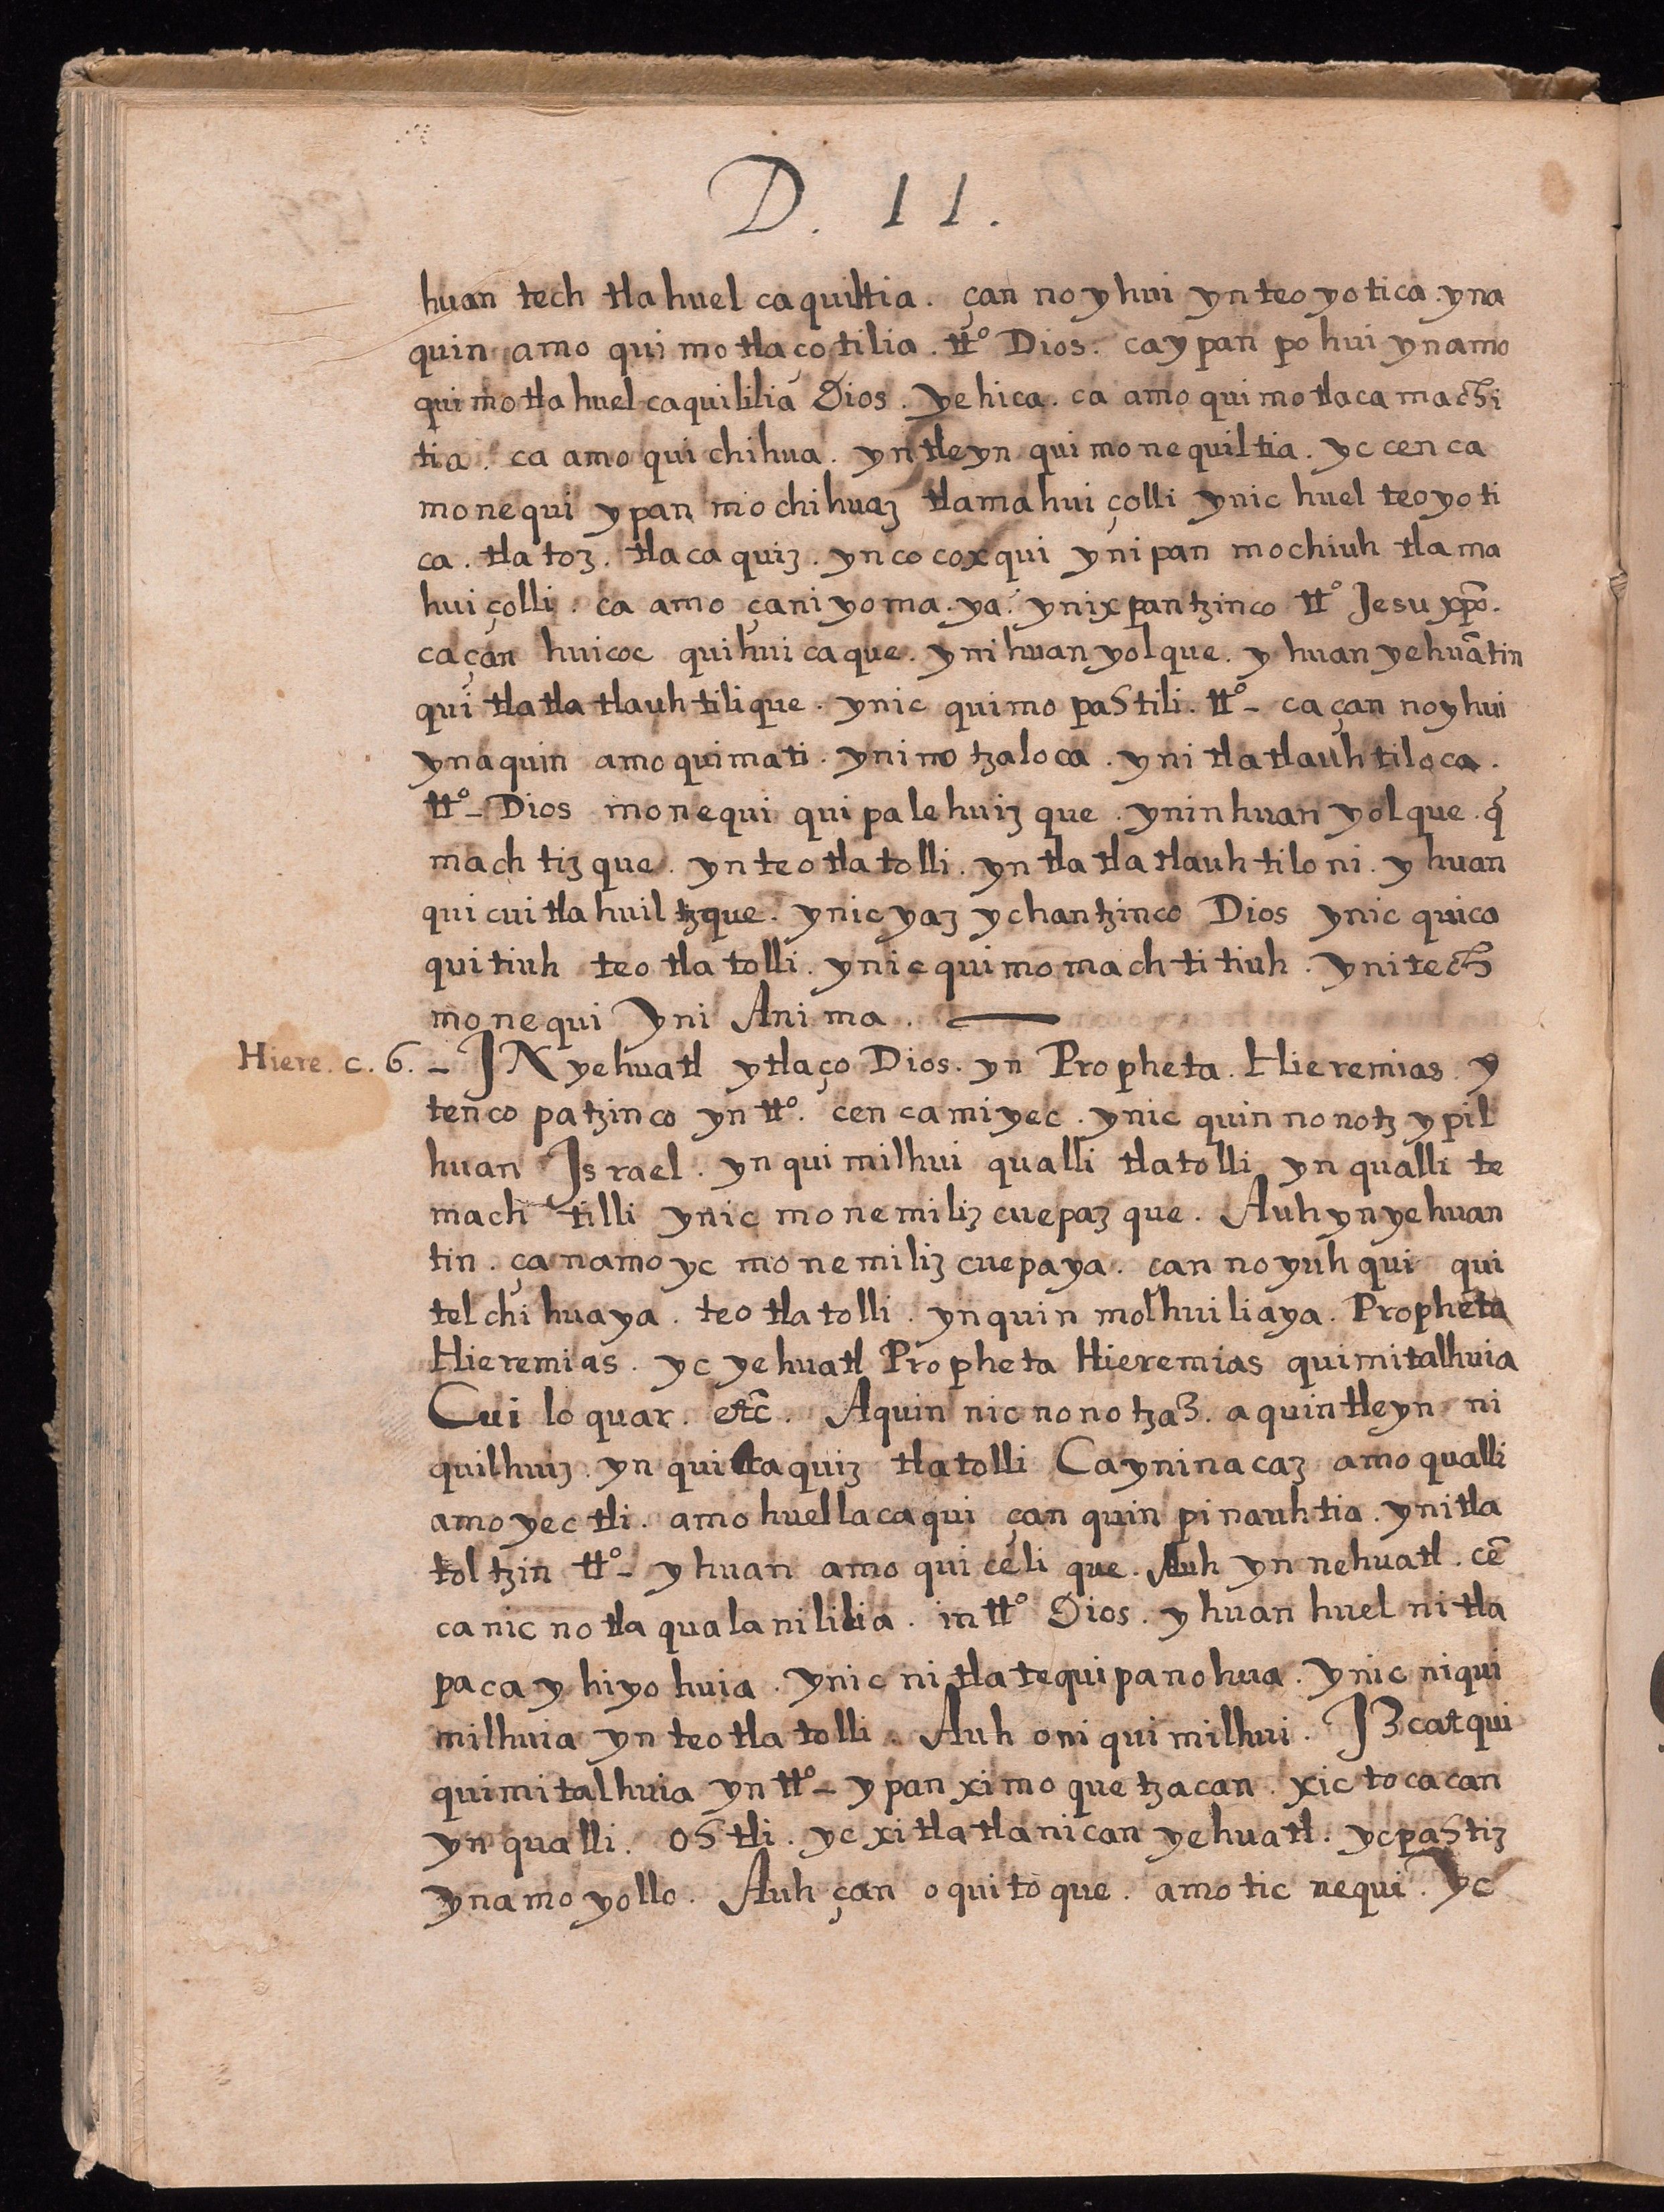 D. 11.
huan tech tlahuel caquiltia. çan no yhui yn teoyotica. yna
quin amo quimotlaçotilia. tt.º Dios. ca ypan pohui yn amo
quimotlahuelcaquililia Dios. yehica. ca amo quimotlacamachi
tia. ca amo quichihua. yn tleyn quimonequiltia. yc cenca
monequi ypan mochihuaz tlamahuiçolli ynic huel teoyoti
ca. tlatoz. tlacaquiz. yn cocoxqui yn ipan mochiuh tlama
huiçolli. ca amo çan iyoma. ya. yn ixpantzinco tt.º Jesu xp̃o.
ca çan huicoc quihuicaque. yn ihuanyolque. yhuan yehuãtin
quitlatlatlauhtilique. ynic quimopaStili. tt.º - ca çan no yhui
yn aquin amo quimati. yn imotzaloca. yn itlatlauhtiloca.
tt.º - Dios monequi quipalehuizque. yn inhuanyolque. q́
machtizque. yn teotlatolli. yn tlatlatlauhtiloni. yhuan
quicuitlahuiltzque. ynic yaz ychantzinco Dios ynic quica
quitiuh teotlatolli. ynic quimomachtitiuh. yn itech
monequi yni Anima. —
Hiere. c. 6. - JN yehuatl ytlaço Dios. yn Propheta. Hieremias y
tencopatzinco yn tt.º cenca miyec. ynic quinnonotz ypil
huan Israel. yn quimilhui qualli tlatolli yn qualli te
machtilli ynic monemilizcuepazque. Auh yn yehuan
tin. çan amo yc monemilizcuepaya. çan no yuhqui qui
telchihuaya. teotlatolli. yn quinmolhuiliaya. Propheta
Hieremias. yc yehuatl Propheta Hieremias quimitalhuia
Cui loquar. etc̃. Aquin nicnonotzaz. aquin tleyn ni
quilhuiz. yn quicaquiz tlatolli Ca yn inacaz amo qualli
amo yectli. amo huellacaqui çan quinpinauhtia. yn itla
toltzin tt.º - yhuan amo quicelique. Auh yn nehuatl. cẽ
ca nicnotlaqualanililia. in tt.º Dios. yhuan huel nitla
pacayhiyohuia. ynic nitlatequipanohua. ynic niqui
milhuia yn teotlatolli. Auh oniquimilhui. Jzcatqui
quimitalhuia yn tt.º - ypan ximoquetzacan. xictocacan
yn qualli. oStli. yc xitlatlanican yehuatl. yc paStiz
yn amoyollo. Auh çan oquitoque. amo ticnequi. yc